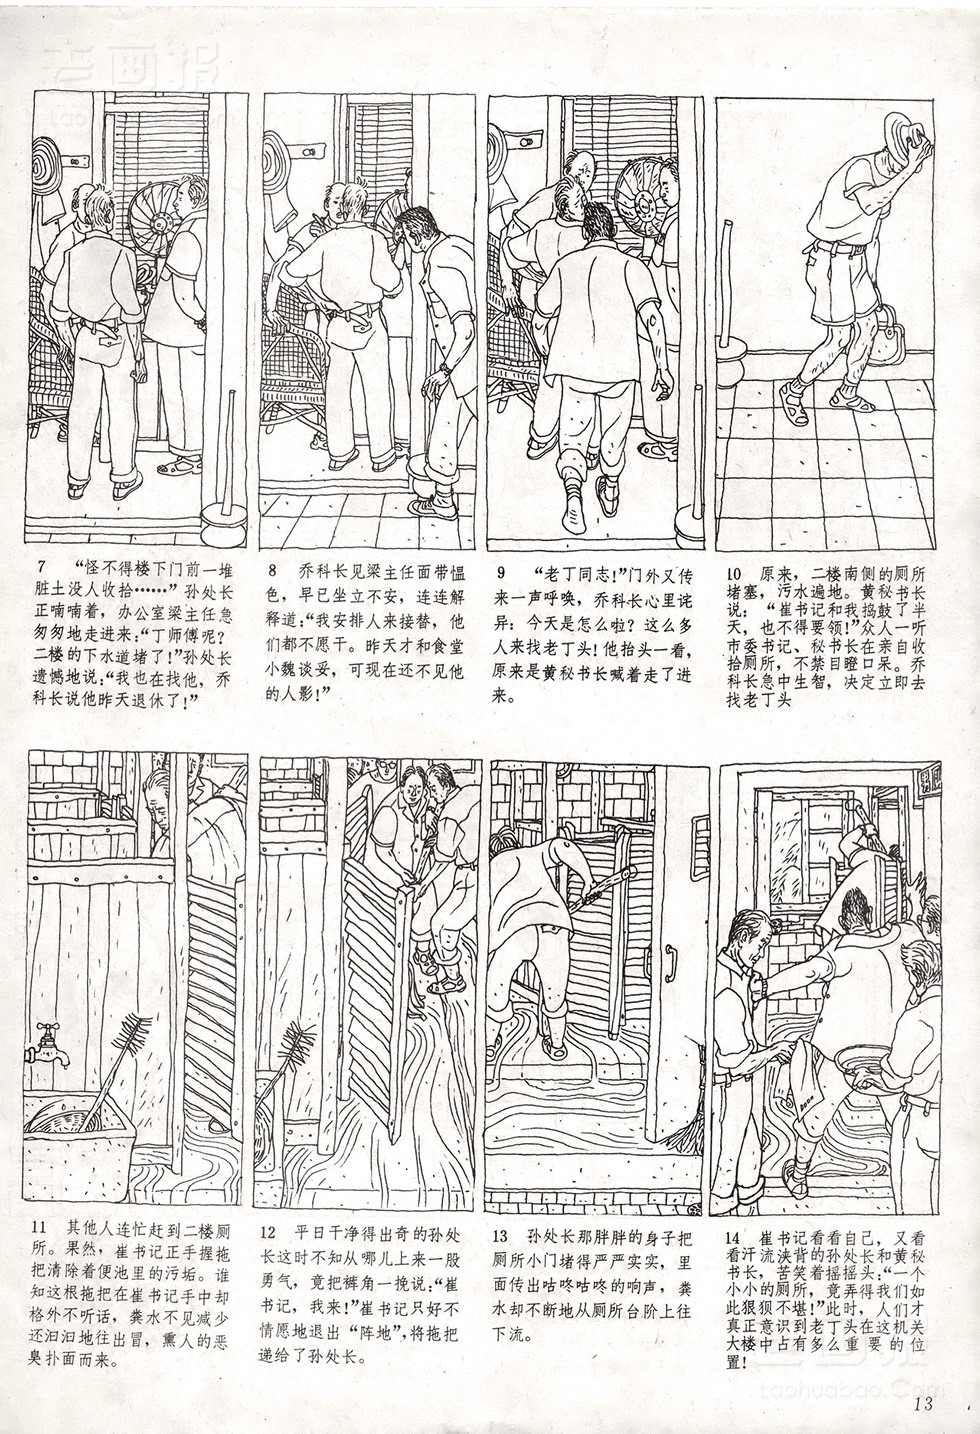 老画报
taohuabao.com
7 “怪不得楼下门前一堆
脏土没人收拾……”孙处长
正喃喃着，办公室梁主任急
匆匆地走进来：“丁师傅呢？
二楼的下水道堵了！”孙处长
遗憾地说：“我也在找他，乔
科长说他昨天退休了！”
8 乔科长见梁主任面带愠
色，早已坐立不安，连连解
释道：“我安排人来接替，他
们都不愿干。昨天才和食堂
小魏谈妥，可现在还不见他
的人影！”
9 “老丁同志！”门外又传
来一声呼唤，乔科长心里诧
异：今天是怎么啦？这么多
人来找老丁头！他抬头一看，
原来是黄秘书长喊着走了进
来。
10 原来，二楼南侧的厕所
堵塞，污水遍地。黄秘书长
说：“崔书记和我捣鼓了半
天，也不得要领！”众人一听
市委书记、秘书长在亲自收
拾厕所，不禁目瞪口呆。乔
科长急中生智，决定立即去
找老丁头
11 其他人连忙赶到二楼厕
所。果然，崔书记正手握拖
把清除着便池里的污垢。谁
知这根拖把在崔书记手中却
格外不听话，粪水不见减少
还汩汩地往出冒，熏人的恶
臭扑面而来。
12 平日干净得出奇的孙处
长这时不知从哪儿上来一股
勇气，竟把裤角一挽说：“崔
书记，我来！”崔书记只好不
情愿地退出“阵地”，将拖把
递给了孙处长。
13 孙处长那胖胖的身子把
厕所小门堵得严严实实，里
面传出咕咚咕咚的响声，粪
水却不断地从厕所台阶上往
下流。
14 崔书记看看自己，又看
看汗流浃背的孙处长和黄秘
书长，苦笑着摇摇头：“一个
小小的厕所，竟弄得我们如
此狼狈不堪！”此时，人们才
真正意识到老丁头在这机关
大楼中占有多么重要的位
置！
taohuabao.com
13